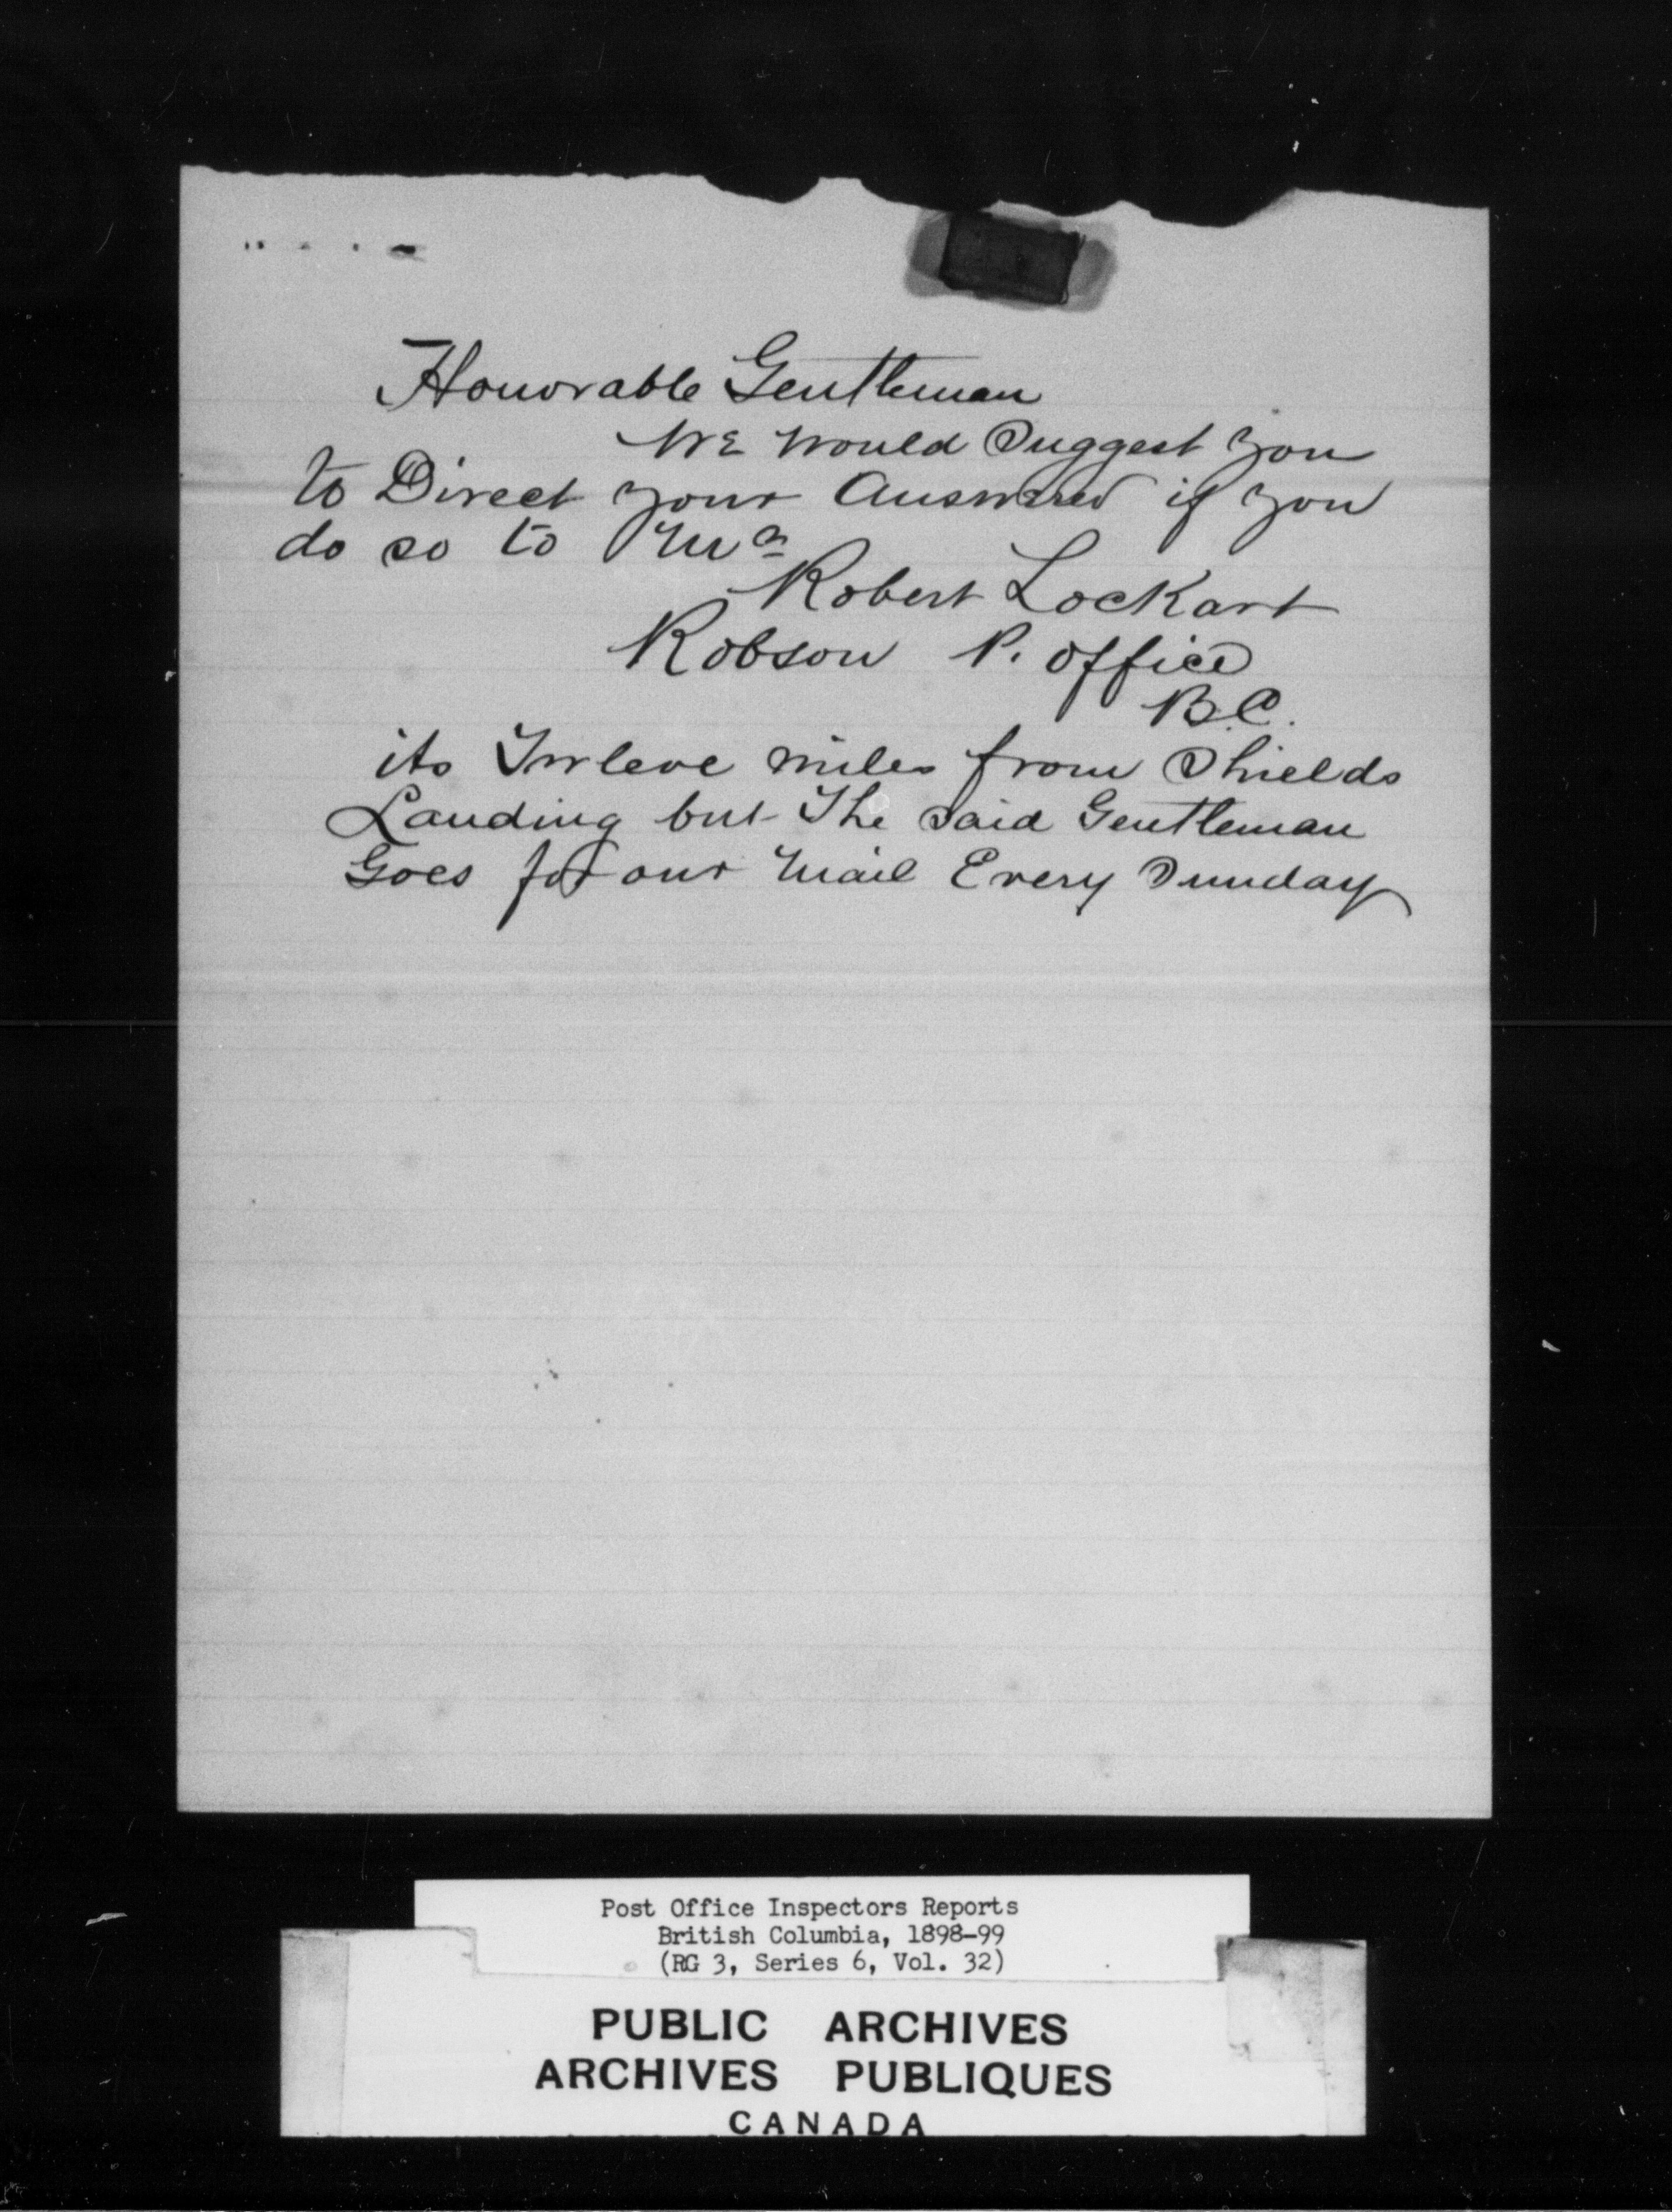 Honorable Gentleman
WE Would Suggest you
to Direct your Answered if you
do so to Mr
Robert Lockart
Robson P. office
B.C.
its Twleve miles from Shields
Landing but The Said Gentleman
Goes for our Mail Every Sunday
Post Office Inspectors Reports
British Columbia, 1898-99
(RG 3, Series 6, Vol. 32)
PUBLIC ARCHIVES
ARCHIVES PUBLIQUES
CANADA